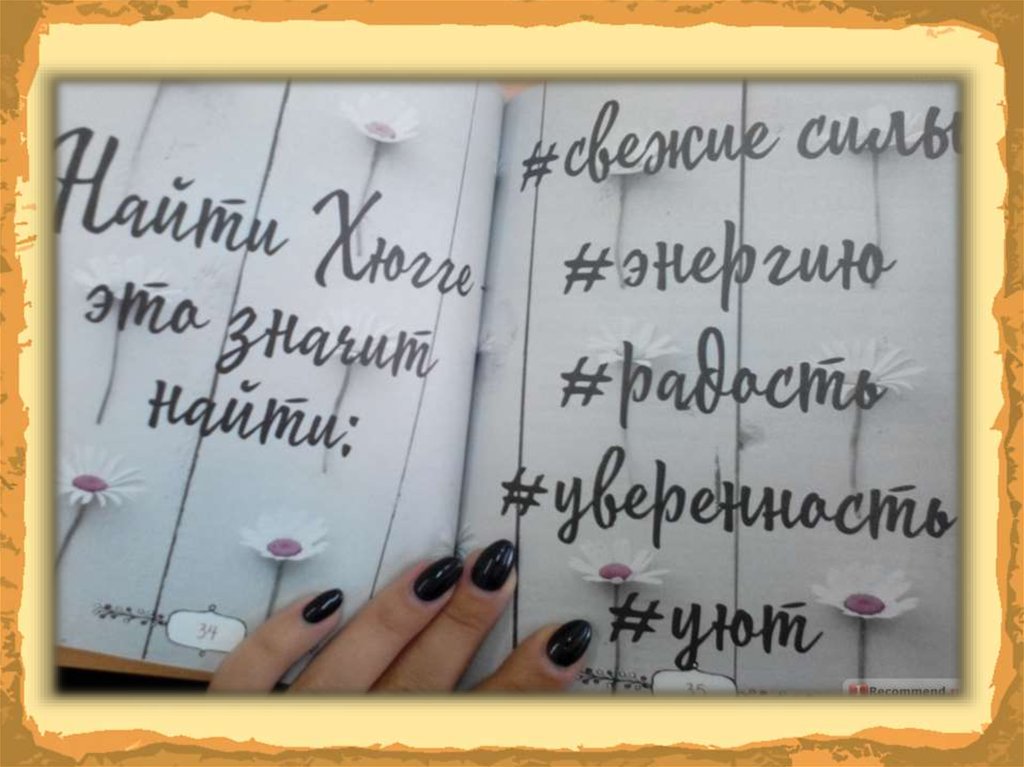 Найти Хюгге-
это значит
найти:
34
#свежие силы
#энергию
#радость
#уверенность
#уют
35
Recommend.ru